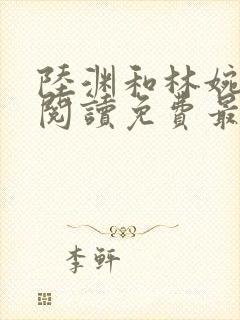 陸渊和林婉
閱讀免費最
李軒